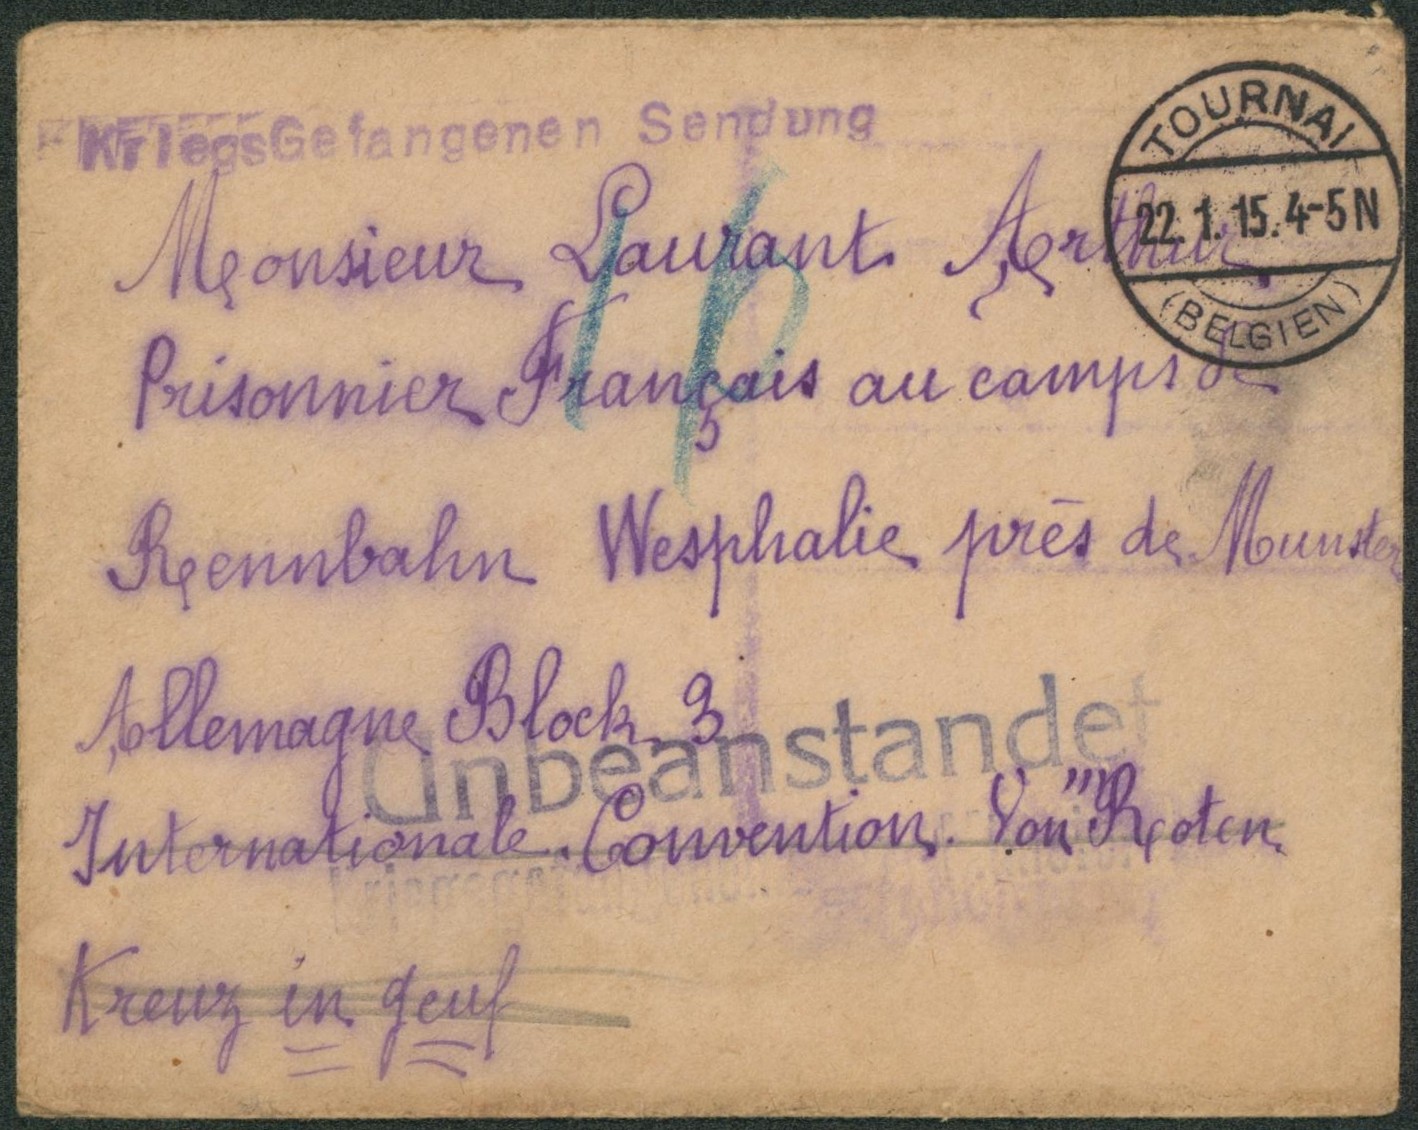 KriegsGefangenen Sendung
TOURNAI
22.1.15.4-5N
(BELGIEN)
Monsieur Laurant Arthur
Prisonnier Français au camps de
Rennbahn Wesphalie près de Munster
Allemagne Block 3
Unbeanstandet
Internationale Convention. Von Roten
Kreuz in genf